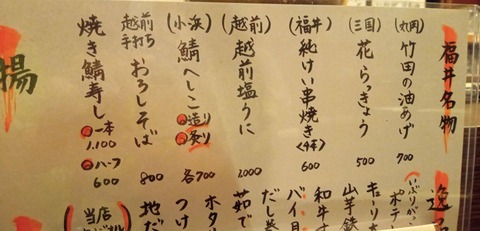 福井名物
(丸岡) 竹田の油あげ 700
(三国) 花らっきょう 500
(福井) 純けい串焼き<4本> 600
(越前) 越前塩うに 2000
(小浜) 鯖へしこ 造り 炙り 各700
越前手打ち おろしそば 800
焼き鯖寿し 一本 1.100 ハーフ 600
揚
逸品
いぶりがっ
ポテ
キューリ
山芋鉄
和牛す
バイ
だし巻
茹で
ホタ
つけ
地だ
当店